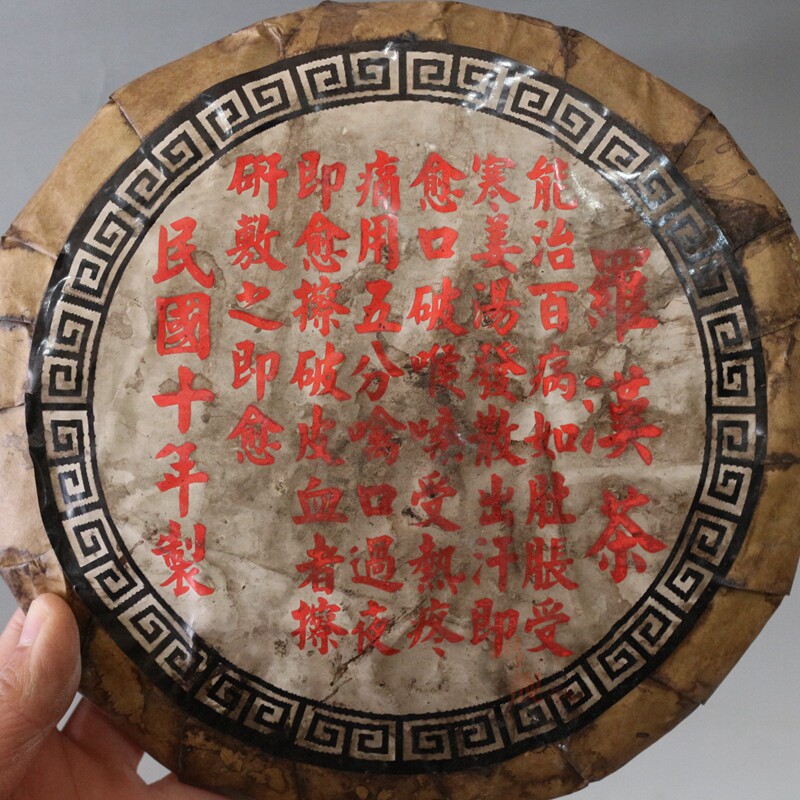 羅漢茶
能治百病如肚脹受
寒姜湯發散出汗即
愈口破喉嚨受熱疼
痛用五分噙口過夜
即愈擦破皮血者擦
研敷之即愈
民國十年製